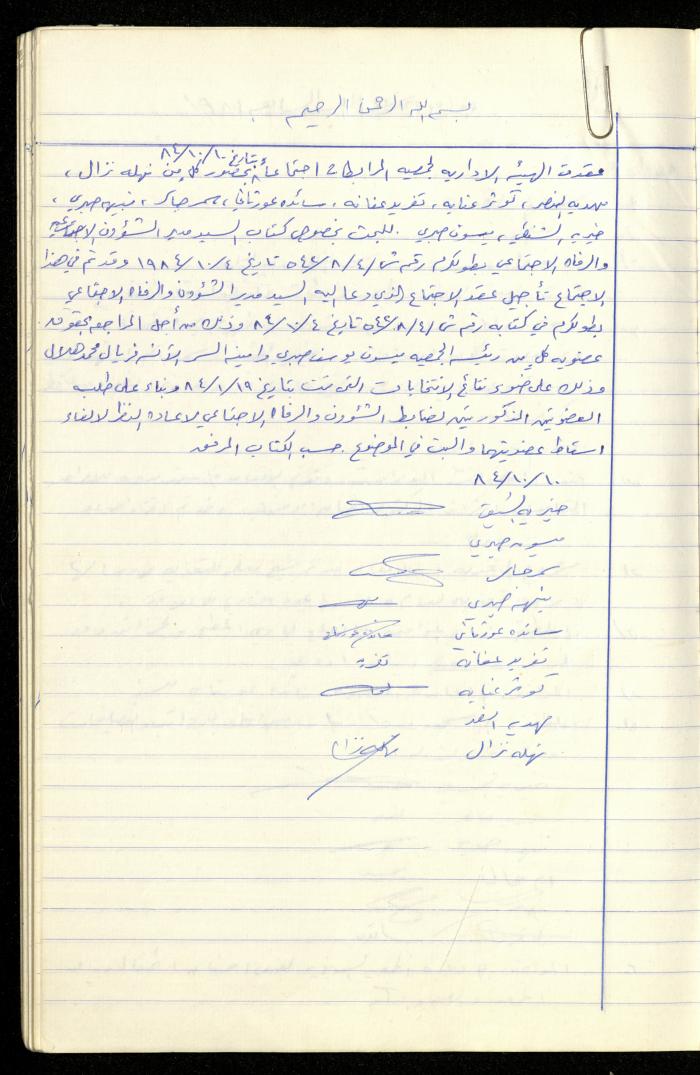 بسم الله الرحمن الرحيم
بتاريخ ٨٤/١٠/١٠
عقدت الهيئة الادارية لجمعية المرابطات اجتماعاً بحضور كل من نهله نزال ،
مهديه النصر ، كوثر عنايه ، تغريد عنانه ، سائده عورتاني ، سمر جابر ، نبيهه صبري ،
خيريه الشنطي ، ميسون صبري . للبحث بخصوص كتاب السيد مدير الشؤون الاجتماعية
والرفاه الاجتماعي بطولكرم رقم ش/٨/٤/٥٤٢ تاريخ ١٩٨٤/١٠/٤ وقد تم في هذا
الاجتماع تأجيل عقد الاجتماع الذي دعا اليه السيد مدير الشؤون والرفاه الاجتماعي
بطولكرم في كتابه رقم ش/٨/٤/٥٤٢ تاريخ ٨٤/١٠/٤ وذلك من أجل المراجعه بحقوق
عضويه كل من رئيسه الجمعيه ميسون يوسف صبري وامينه السر الآنسه فريال محمد هلال
وذلك على ضوء نتائج الانتخابات التي تمت بتاريخ ٨٤/١/١٩ وبناء على طلب
العضوتين المذكورتين لضابط الشؤون والرفاه الاجتماعي لاعاده النظر لالغاء
اسقاط عضويتهما والبت في الموضوع . حسب الكتاب المرفق
٨٤/١٠/١٠
خيريه
ميسون صبري
سمر جابر
نبيهه صبري
سائده عورتاني
تغريد عنانه تغريد
كوثر عنايه
مهديه النصر
نهله نزال نهله نزال